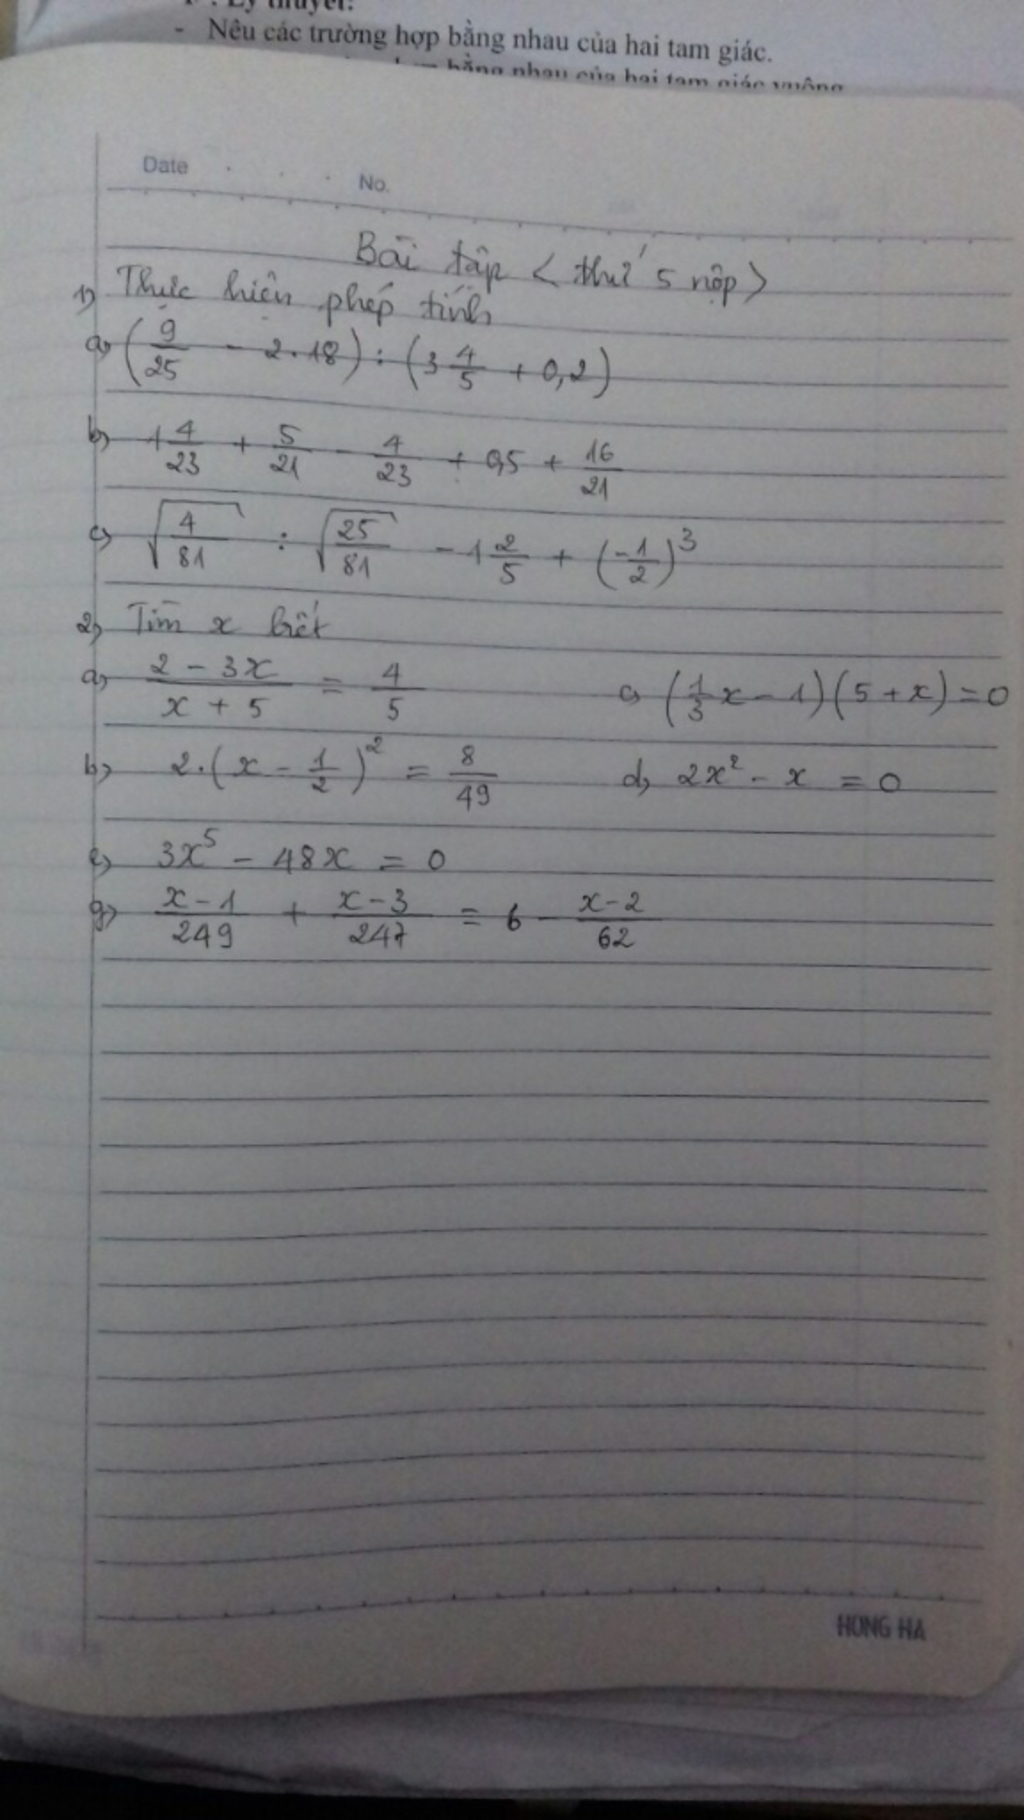 Lý thuyết:
- Nêu các trường hợp bằng nhau của hai tam giác.
bằng nhau của hai tam giác vuông
Date
No.
Bài tập < thứ 5 nộp >
1) Thực hiện phép tính
a) (9/25 - 2.18) : (3 4/5 + 0,2)
b) 1 4/23 + 5/21 - 4/23 + 0,5 + 16/21
c) √(4/81) : √(25/81) - 1 2/5 + (-1/2)³
2) Tìm x biết
a) (2 - 3x)/(x + 5) = 4/5 c) (1/3 x - 1)(5 + x) = 0
b) 2.(x - 1/2)² = 8/49 d) 2x² - x = 0
e) 3x⁵ - 48x = 0
g) (x - 1)/249 + (x - 3)/247 = 6 - (x - 2)/62
HONG HA